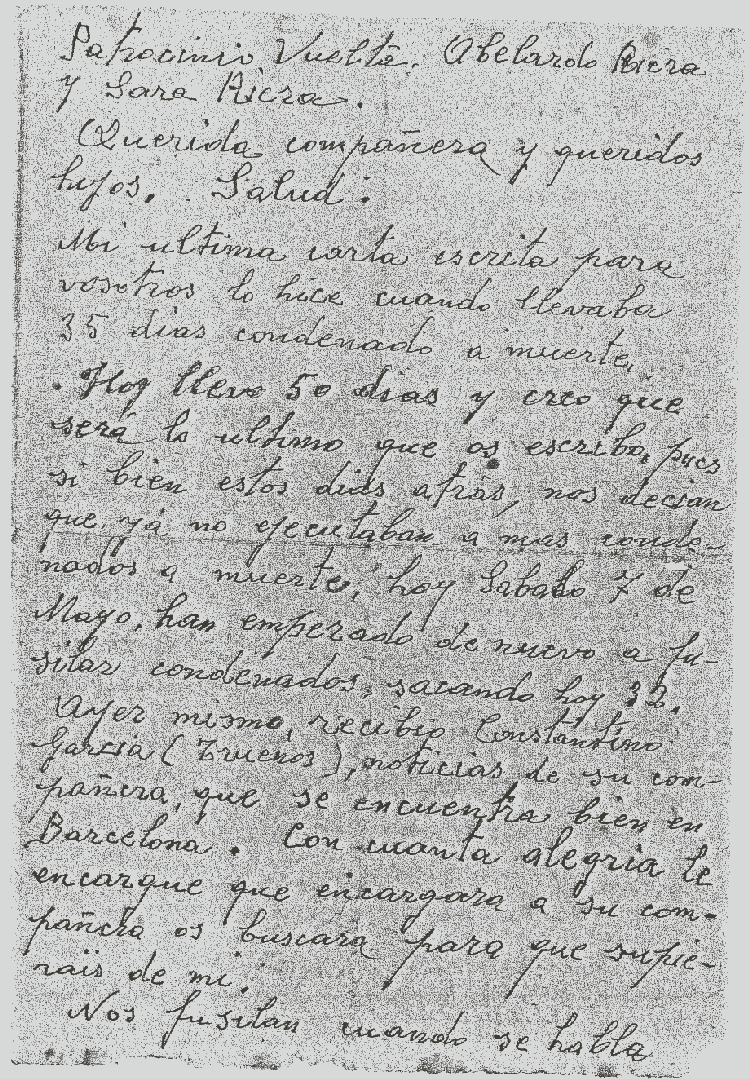 Patrocinio Vuelta. Abelardo Riera
y Sara Riera.
Querida compañera y queridos
hijos. Salud:
Mi ultima carta escrita para
vosotros lo hice cuando llevaba
35 dias condenado a muerte.
. Hoy llevo 50 dias y creo que
será lo ultimo que os escriba, pues
si bien estos dias atras, nos decian
que yá no ejecutaban a mas conde-
nados a muerte, hoy Sabado 7 de
Mayo, han empezado de nuevo a fu-
silar condenados, sacando hoy 32.
Ayer mismo, recibio Constantino
Garcia (Truenos), noticias de su com-
pañera, que se encuentra bien en
Barcelona. Con cuanta alegria le
encargue que encargara a su com-
pañera os buscara para que supie-
rais de mi.
Nos fusilan cuando se habla